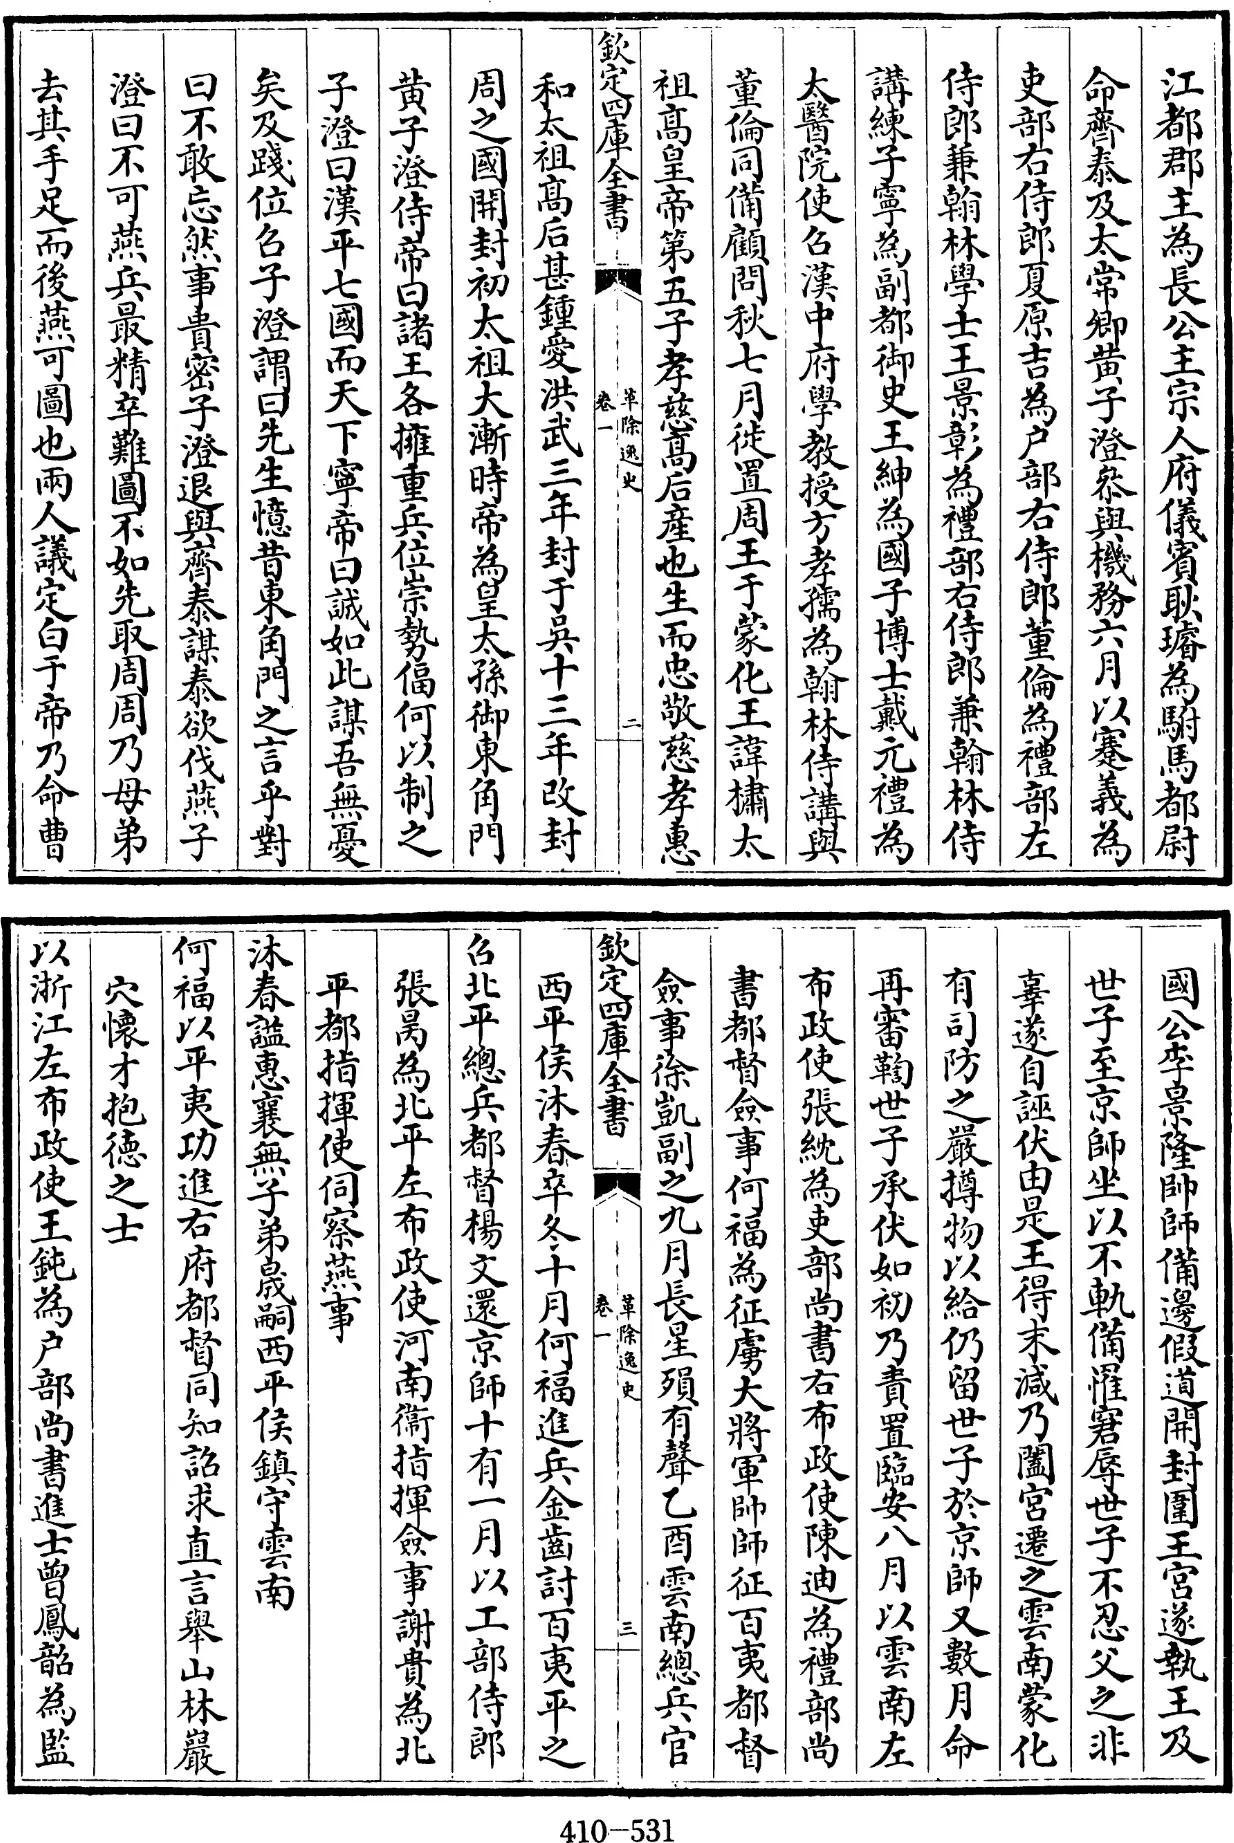 江都郡主為長公主宗人府儀賓耿璿為駙馬都尉
命齊泰及太常卿黄子澄叅與機務六月以蹇義為
吏部右侍郎夏原吉為户部右侍郎董倫為禮部左
侍郎兼翰林學士王景彰為禮部右侍郎兼翰林侍
講練子寧為副都御史王紳為國子博士戴元禮為
太醫院使召漢中府學教授方孝孺為翰林侍講與
董倫同備顧問秋七月徙置周王于蒙化王諱橚太
祖高皇帝第五子孝慈高后產也生而忠敬慈孝惠
欽定四庫全書
革除逸史
卷一
二
和太祖高后甚鍾愛洪武三年封于吳十三年改封
周之國開封初太祖大漸時帝為皇太孫御東角門
黄子澄侍帝曰諸王各擁重兵位崇勢偪何以制之
子澄曰漢平七國而天下寧帝曰誠如此謀吾無憂
矣及踐位召子澄謂曰先生憶昔東角門之言乎對
曰不敢忘然事貴密子澄退與齊泰謀泰欲伐燕子
澄曰不可燕兵最精卒難圖不如先取周周乃母弟
去其手足而後燕可圖也兩人議定白于帝乃命曹
國公李景隆帥師備邊假道開封圍王宮遂執王及
世子至京師坐以不軌備罹窘辱世子不忍父之非
辜遂自誣伏由是王得末減乃闔宮遷之雲南蒙化
有司防之嚴撙物以給仍留世子於京師又數月命
再審鞫世子承伏如初乃責置臨安八月以雲南左
布政使張紞為吏部尚書右布政使陳迪為禮部尚
書都督僉事何福為征虜大將軍帥師征百夷都督
僉事徐凱副之九月長星殞有聲乙酉雲南總兵官
欽定四庫全書
革除逸史
卷一
三
西平侯沐春卒冬十月何福進兵金齒討百夷平之
召北平總兵都督楊文還京師十有一月以工部侍郎
張昺為北平左布政使河南衞指揮僉事謝貴為北
平都指揮使伺察燕事
沐春諡惠襄無子弟晟嗣西平侯鎮守雲南
何福以平夷功進右府都督同知詔求直言舉山林巖
穴懷才抱德之士
以浙江左布政使王鈍為户部尚書進士曾鳳韶為監
410-531